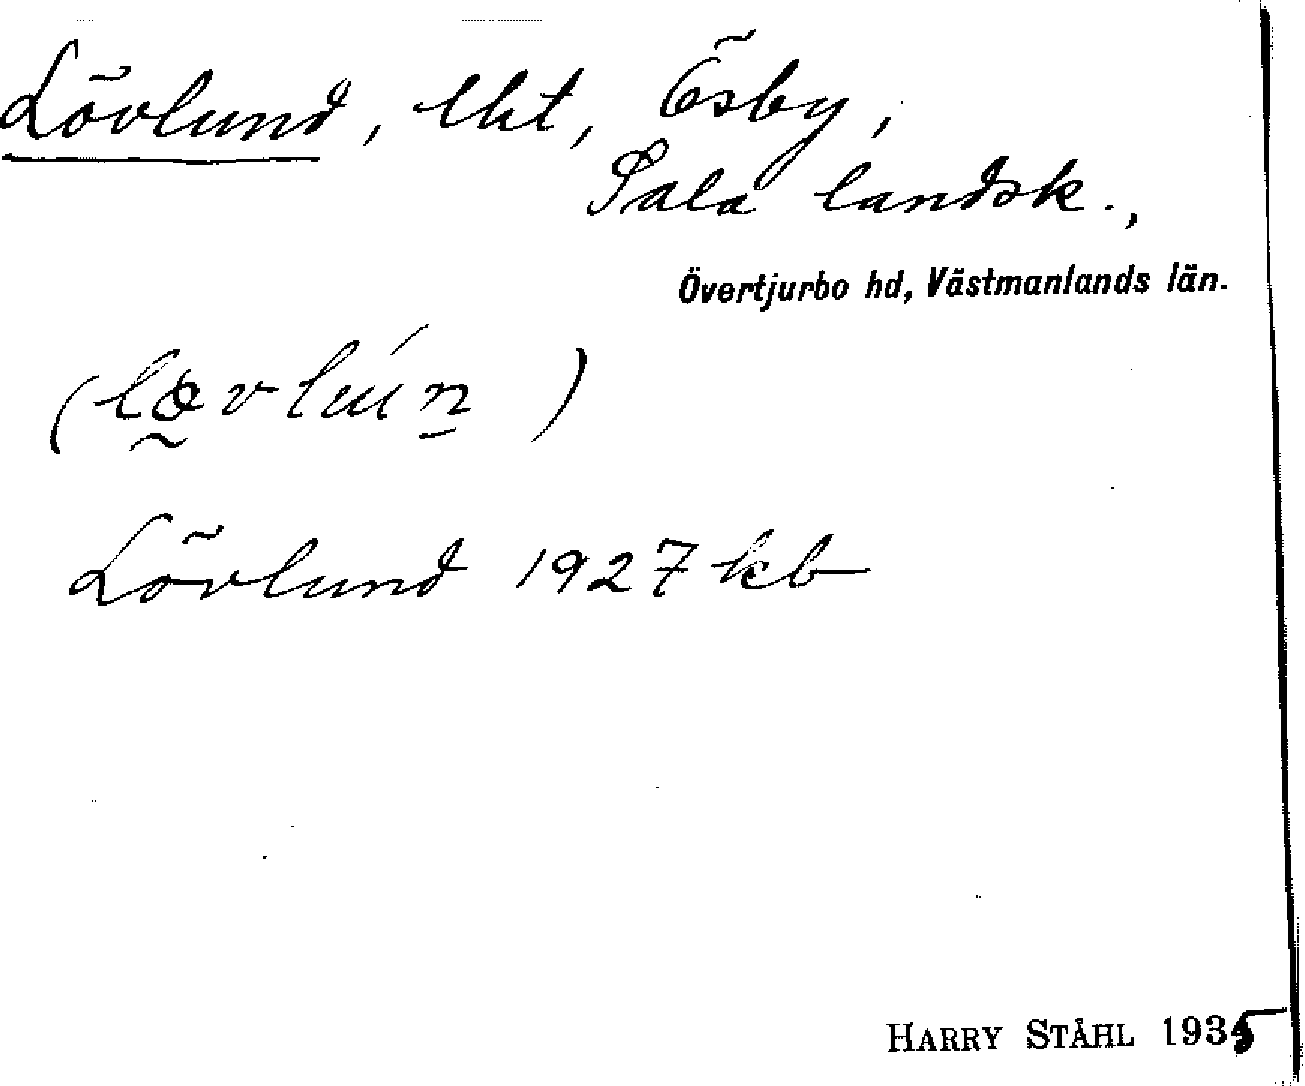 Lövlund, lht, Ösby,
Sala landsk.,
Övertjurbo hd, Västmanlands län.
Lövlund 1927 kb
HARRY STÅHL 1935